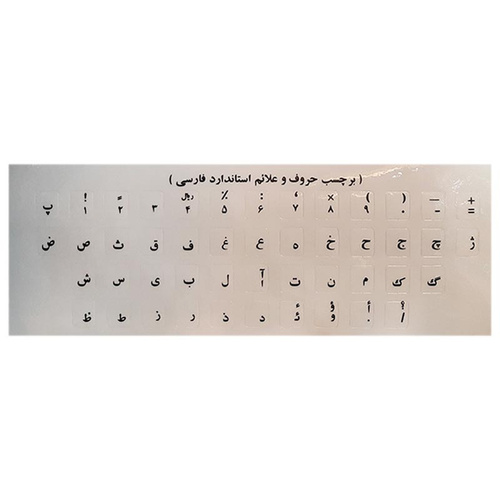 ( برچسب حروف و علائم استاندارد فارسی )
پ ! ۱ ۲ ۳ ﷼ ۴ ٪ ۵ : ۶ ، ۷ × ۸ ) ۹ ( ۰ — - + =
ض ص ث ق ف غ ع ه خ ح ج چ ژ
ش س ی ب ل آ ا ت ن م ک گ
ظ ط ز ر ذ د ئ ؤ و أ . ؟ /